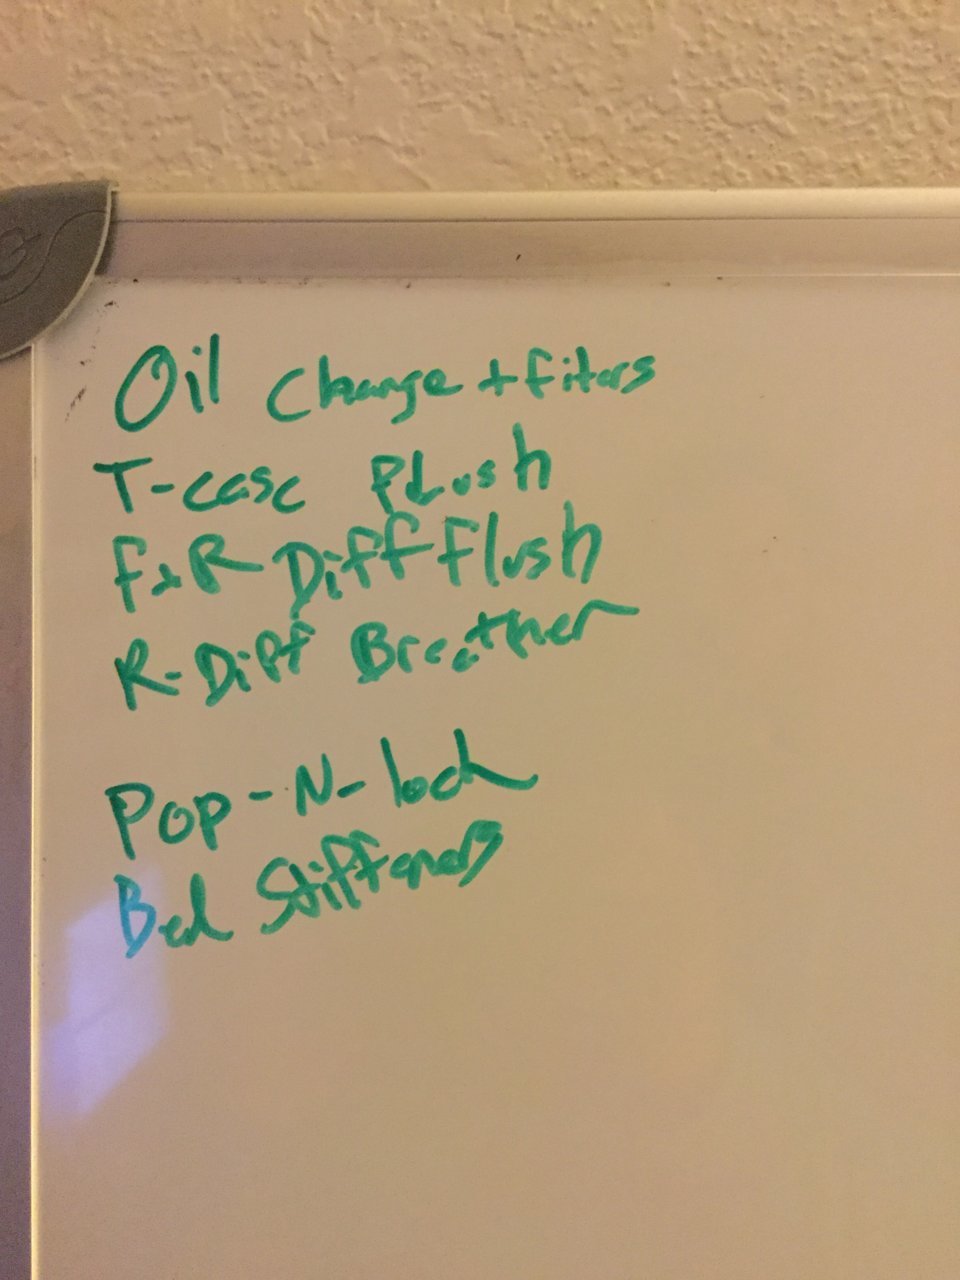 Oil Change + fiters
T-case Flush
F+R Diff flush
R-Diff Breather
Pop-N-lock
Bed Stiffeners